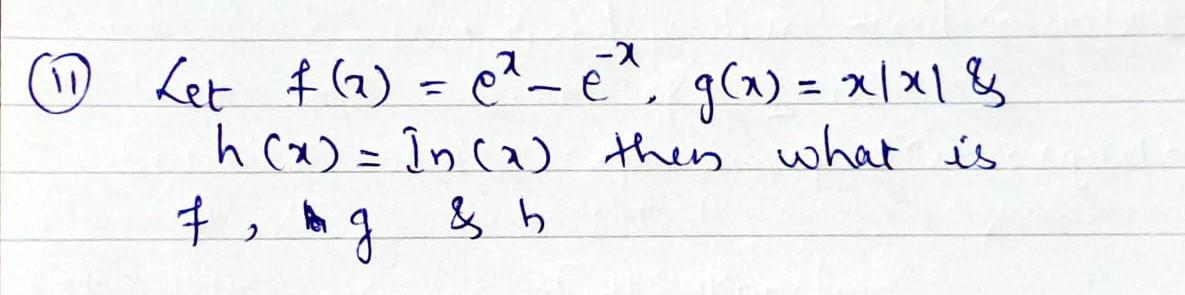 (11) Let f(x) = e^x - e^-x, g(x) = x|x| &
h(x) = ln(x) then what is
f, g & h